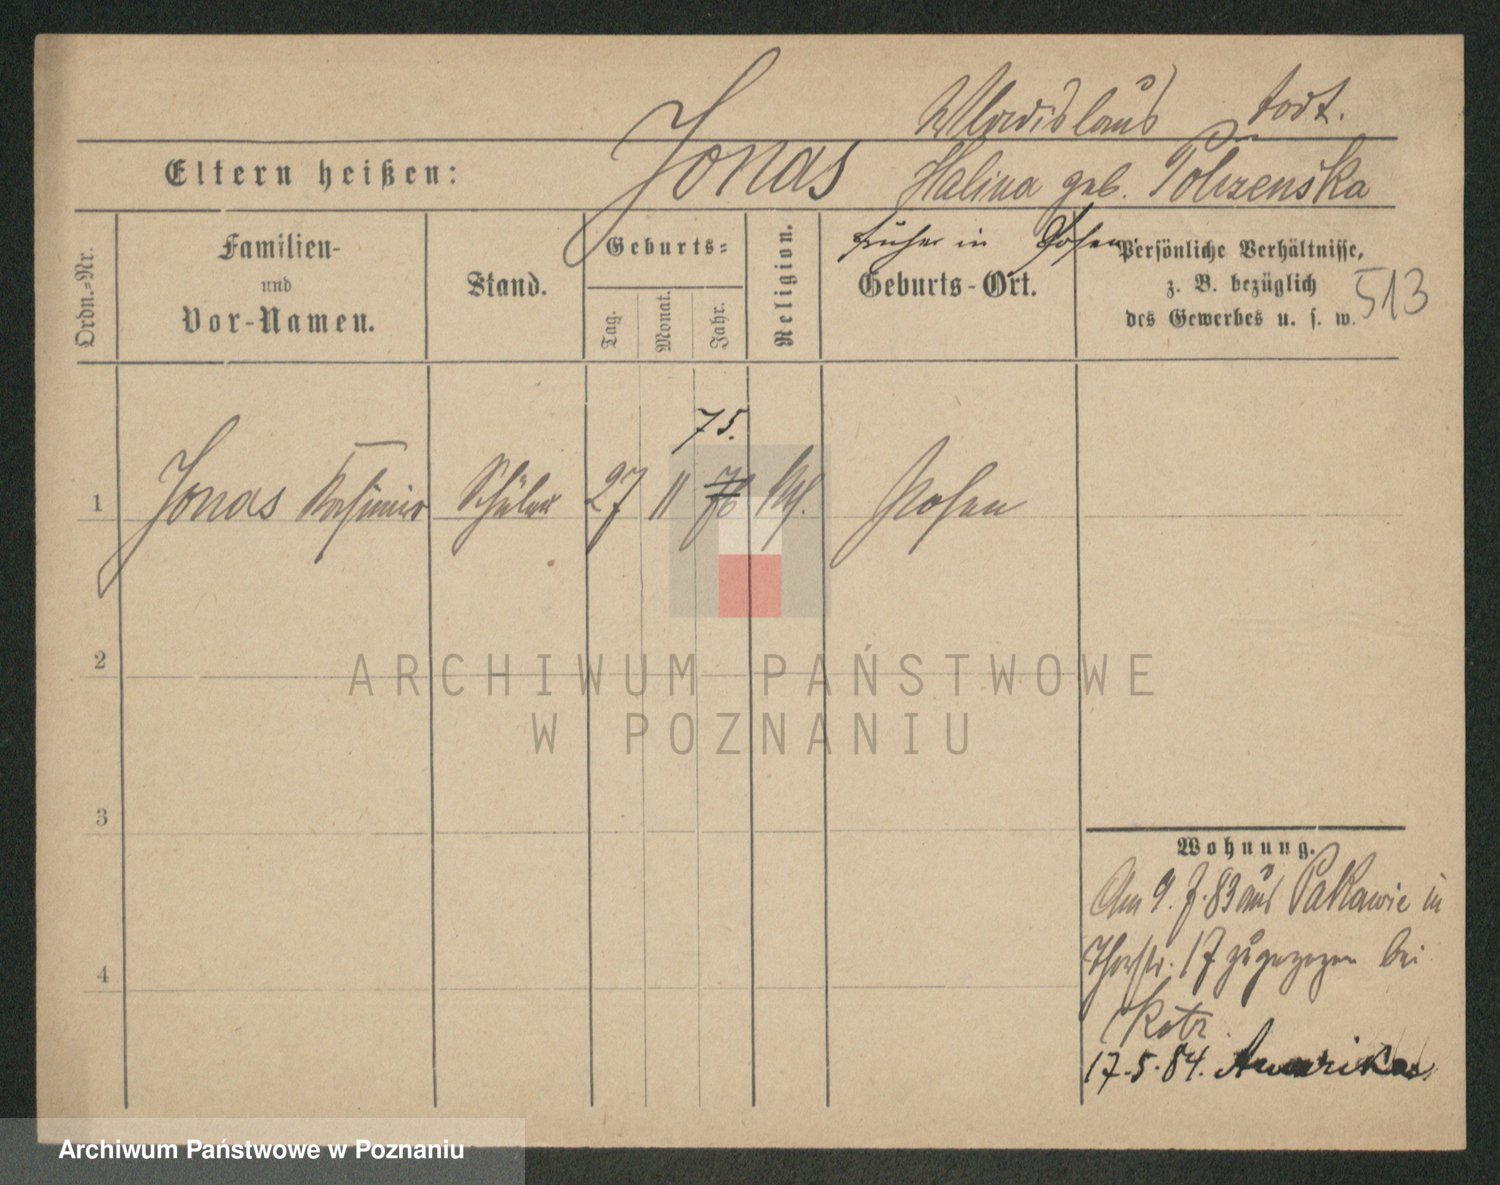 Wladislaus todt.
Eltern heißen: Jonas Halina geb.
früher in Posen
Ordn.-Nr. Familien- und Vor-Namen. Stand. Geburts- Tag. Monat. Jahr. Religion. Geburts-Ort. Persönliche Verhältnisse,
z. B. bezüglich
des Gewerbes u. s. w. 513
75.
1 Jonas Kasimir Schüler 27 11 76 kth. Posen
2
ARCHIWUM PAŃSTWOWE
W POZNANIU
3
Wohnung.
Am 9. 7. 83 aus Pakawie in
Thorstr. 17 zugezogen bei
4
17.5.84. Amerika
Archiwum Państwowe w Poznaniu